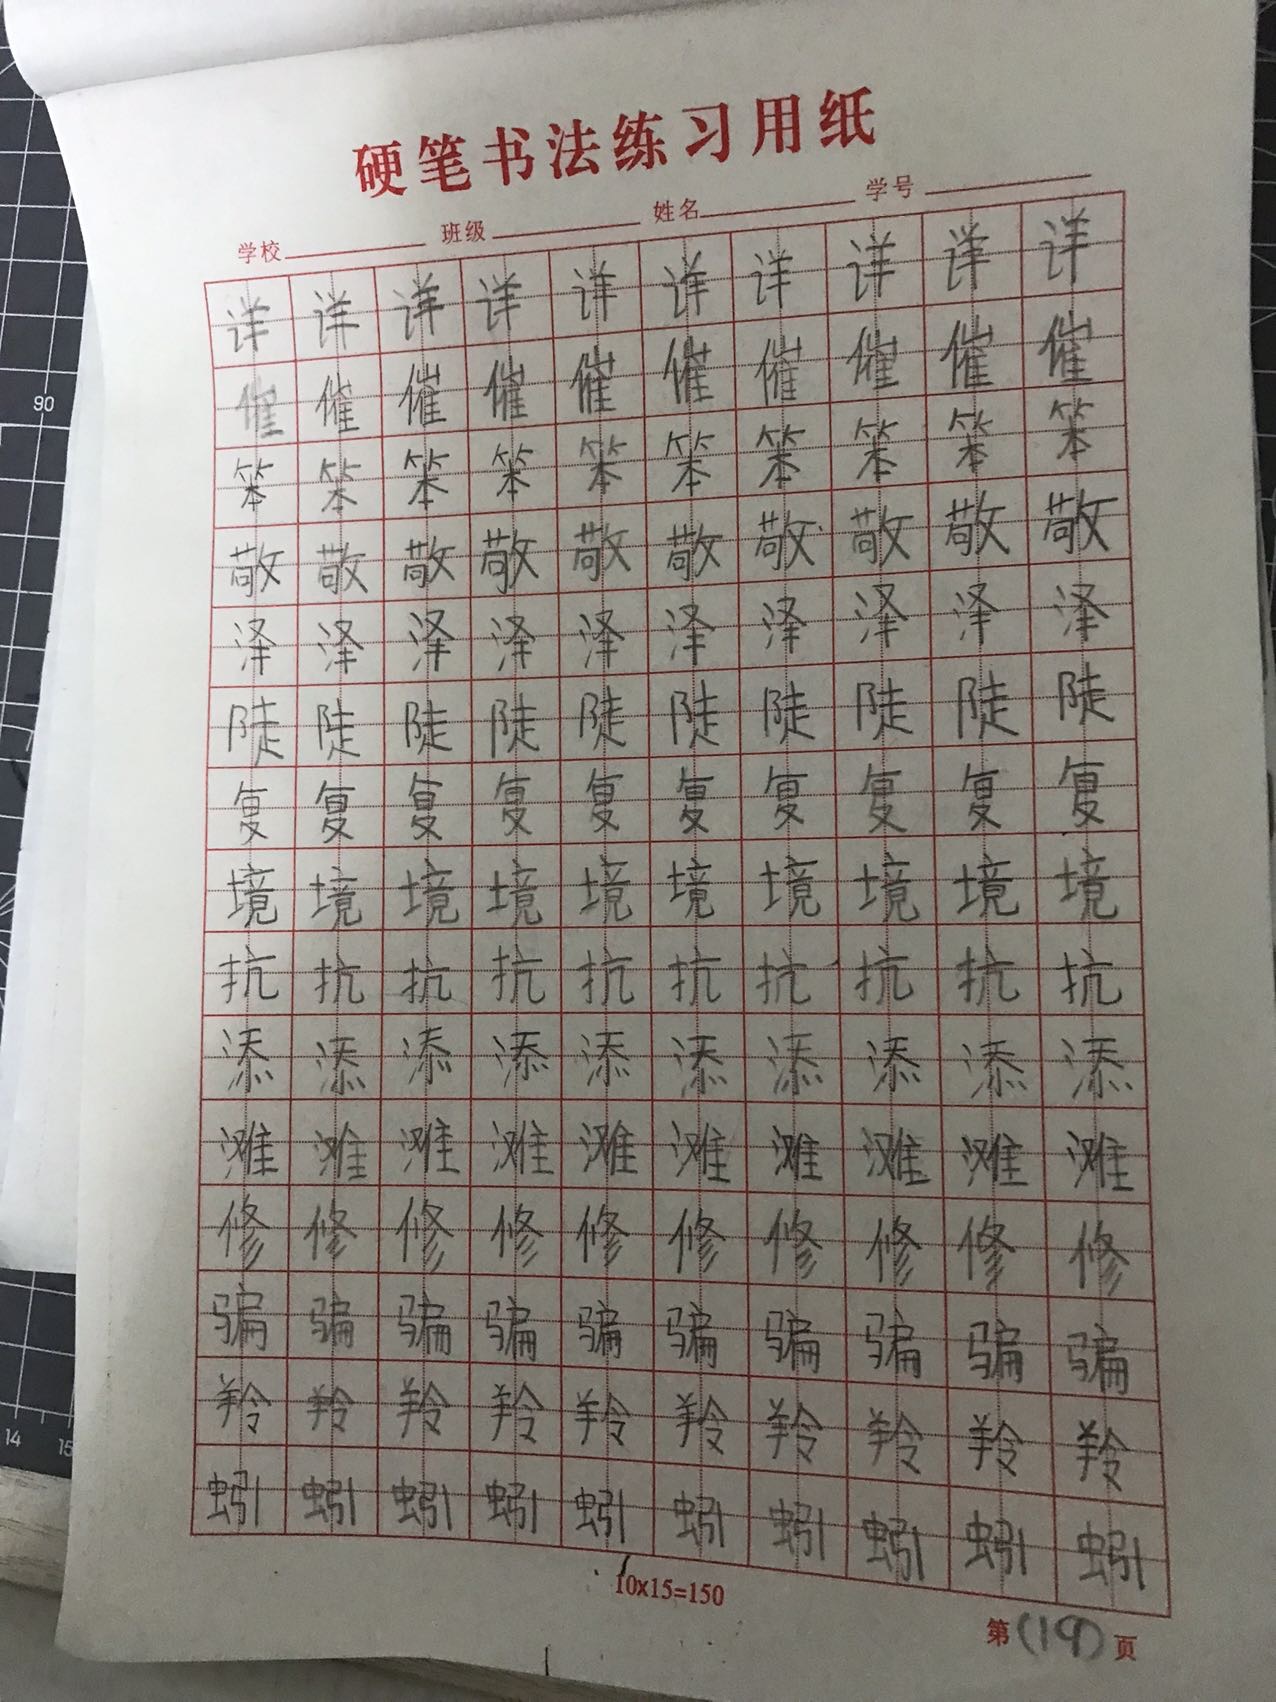 硬笔书法练习用纸
学校 班级 姓名 学号
详详详详详详详详详详
催催催催催催催催催催
笨笨笨笨笨笨笨笨笨笨
敬敬敬敬敬敬敬敬敬敬
泽泽泽泽泽泽泽泽泽泽
陡陡陡陡陡陡陡陡陡陡
复复复复复复复复复复
境境境境境境境境境境
抗抗抗抗抗抗抗抗抗抗
添添添添添添添添添添
滩滩滩滩滩滩滩滩滩滩
修修修修修修修修修修
骗骗骗骗骗骗骗骗骗骗
羚羚羚羚羚羚羚羚羚羚
蚓蚓蚓蚓蚓蚓蚓蚓蚓蚓
10x15=150
第(19)页
90
14 15